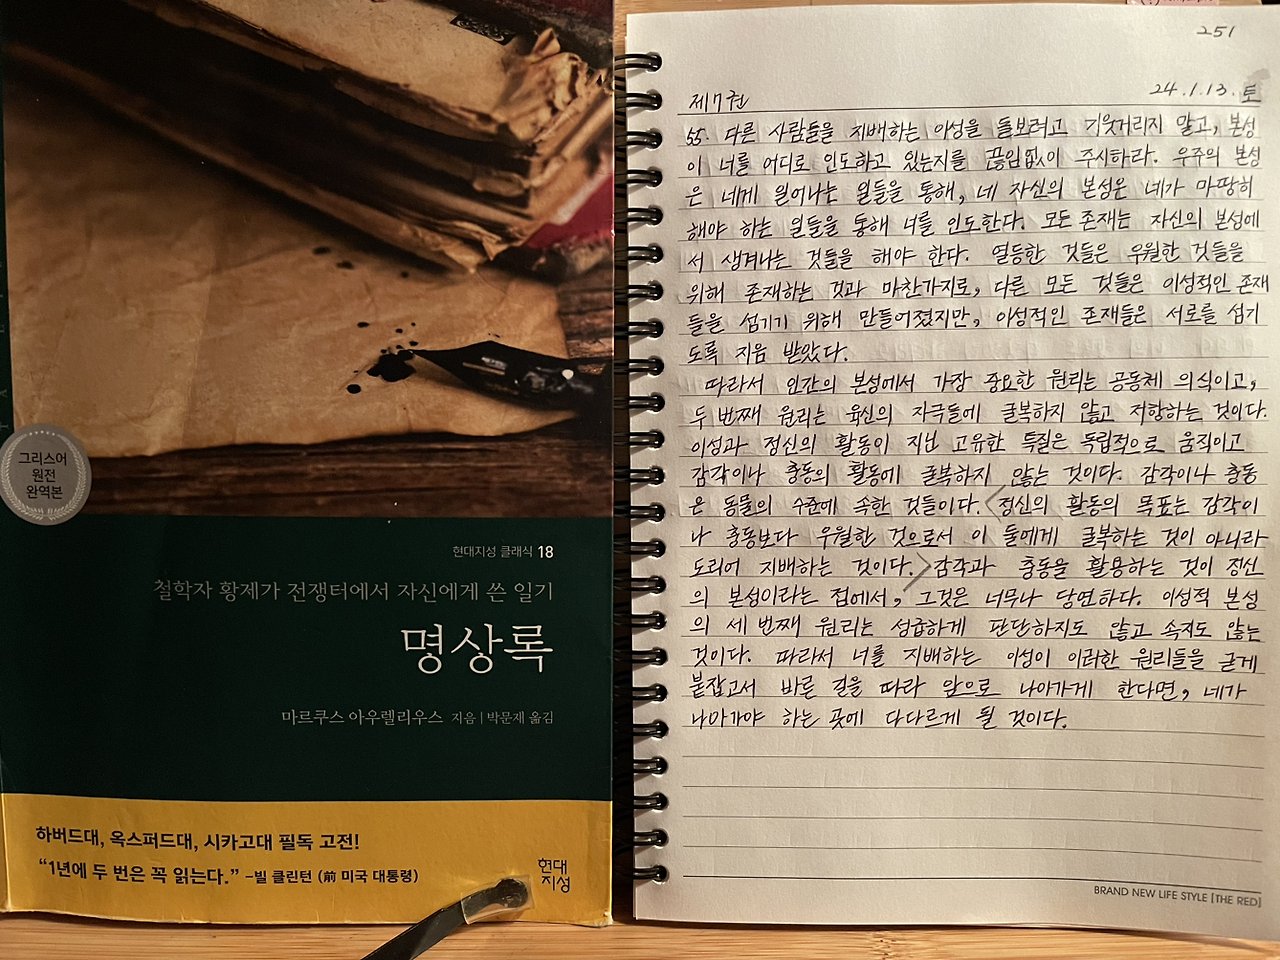 그리스어
원전
완역본
현대지성 클래식 18
철학자 황제가 전쟁터에서 자신에게 쓴 일기
명상록
마르쿠스 아우렐리우스 지음 | 박문재 옮김
하버드대, 옥스퍼드대, 시카고대 필독 고전!
“1년에 두 번은 꼭 읽는다.” –빌 클린턴 (前 미국 대통령)
현대
지성
251
제7권 24.1.13.토
55. 다른 사람들을 지배하는 이성을 들보려고 기웃거리지 말고, 본성
이 너를 어디로 인도하고 있는지를 끊임없이 주시하라. 우주의 본성
은 네게 일어나는 일들을 통해, 네 자신의 본성은 네가 마땅히
해야 하는 일들을 통해 너를 인도한다. 모든 존재는 자신의 본성에
서 생겨나는 것들을 해야 한다. 열등한 것들은 우월한 것들을
위해 존재하는 것과 마찬가지로, 다른 모든 것들은 이성적인 존재
들을 섬기기 위해 만들어졌지만, 이성적인 존재들은 서로를 섬기
도록 지음 받았다.
따라서 인간의 본성에서 가장 중요한 원리는 공동체 의식이고,
두번째 원리는 육신의 자극들에 굴복하지 않고 저항하는 것이다.
이성과 정신의 활동이 지닌 고유한 특질은 독립적으로 움직이고
감각이나 충동의 활동에 굴복하지 않는 것이다. 감각이나 충동
은 동물의 수준에 속한 것들이다. <정신의 활동의 목표는 감각이
나 충동보다 우월한 것으로서 이 둘에게 굴복하는 것이 아니라
도리어 지배하는 것이다.> 감각과 충동을 활용하는 것이 정신
의 본성이라는 점에서, 그것은 너무나 당연하다. 이성적 본성
의 세번째 원리는 성급하게 판단하지도 않고 속지도 않는
것이다. 따라서 너를 지배하는 이성이 이러한 원리들을 굳게
붙잡고서 바른 길을 따라 앞으로 나아가게 한다면, 네가
나아가야 하는 곳에 다다르게 될 것이다.
BRAND NEW LIFE STYLE [THE RED]